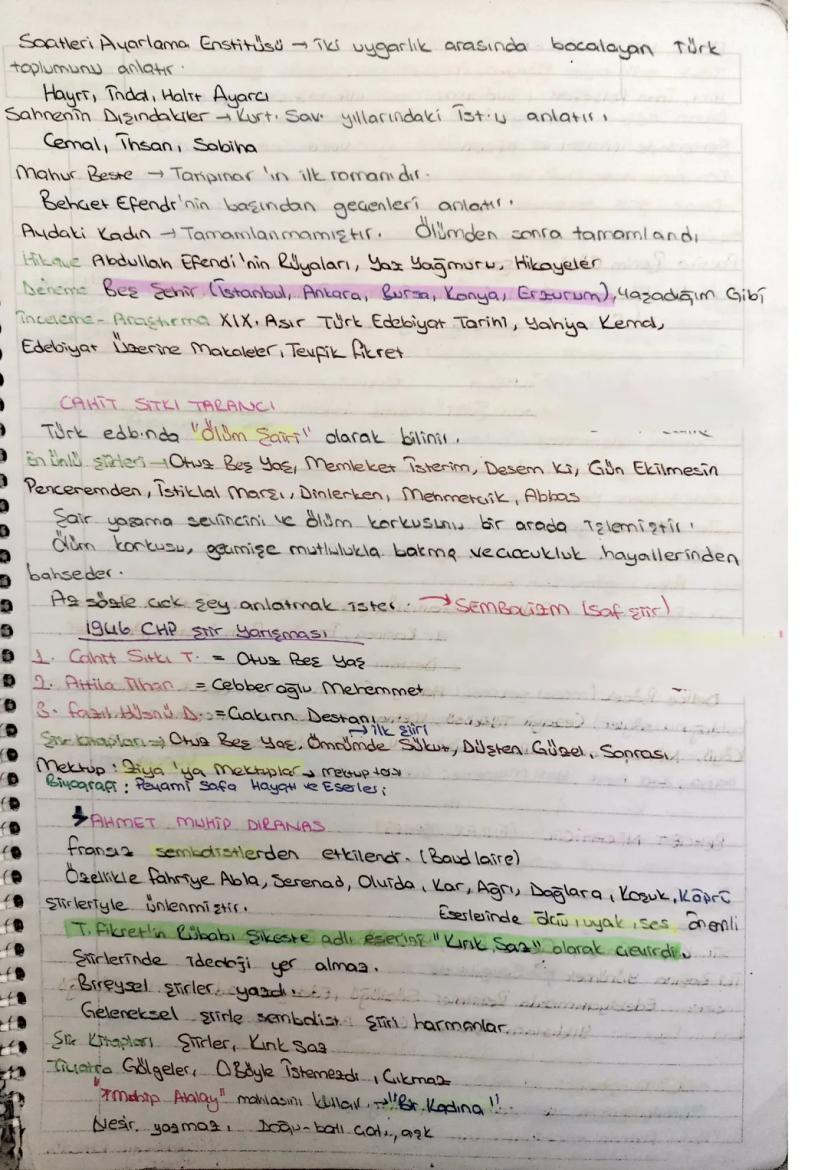 Saatleri Ayarlama Enstitüsü → iki uygarlık arasında bocalayan Türk
toplumunu anlatır.
Hayri, İrdal, Halit Ayarcı
Sahnenin Dışındakiler → Kurt. Sav. yıllarındaki İst.u anlatır.
Cemal, İhsan, Sabiha
Mahur Beste → Tanpınar'ın ilk romanıdır.
Behçet Efendi'nin başından geçenleri anlatır.
Aydaki Kadın → Tamamlanmamıştır. Ölümden sonra tamamlandı
Hikaye Abdullah Efendi'nin Rüyaları, Yaz Yağmuru, Hikayeler
Deneme Beş Şehir (İstanbul, Ankara, Bursa, Konya, Erzurum), Yaşadığım Gibi
İnceleme-Araştırma XIX. Asır Türk Edebiyat Tarihi, Yahya Kemal,
Edebiyat Üzerine Makaleler, Tevfik Fikret
CAHİT SITKI TARANCI
Türk edbında "Ölüm Şairi" olarak bilinir.
En ünlü şiirleri → Otuz Beş Yaş, Memleket İsterim, Desem Ki, Gün Eksilmesin
Penceremden, İstiklal Marşı, Dinlerken, Mehmetçik, Abbas
Şair yaşama sevincini ve ölüm korkusunu bir arada işlemiştir.
Ölüm korkusu, geçmişe mutlulukla bakma ve çocukluk hayallerinden
bahseder.
Az sözle çok şey anlatmak ister. → SEMBOLİZM (Saf şiir)
1946 CHP Şiir Yarışması
1. Cahit Sıtkı T. = Otuz Beş Yaş
2. Attila İlhan = Cebberoğlu Mehemmet
3. Fazıl Hüsnü D. = Çakırın Destanı
→ ilk şiiri
Şiir kitapları → Otuz Beş Yaş, Ömrümde Sükut, Düşten Güzel, Sonrası
Mektup: Ziya'ya Mektuplar → mektup
Biyografi: Peyami Safa Hayatı ve Eserleri
AHMET MUHİP DIRANAS
Fransız sembolistlerden etkilendi. (Baudlaire)
Özellikle Fahriye Abla, Serenad, Olvido, Kar, Ağrı, Dağlara, Koşuk, Köprü
şiirleriyle ünlenmiştir. Eserlerinde ölçü, uyak, ses önemli
T. Fikret'in Rübabı Şikeste adlı eserini "Kırık Saz" olarak çevirdi.
Şiirlerinde ideoloji yer almaz.
Bireysel şiirler yazdı.
Geleneksel şiirle sembolist şiiri harmanlar.
Şiir Kitapları Şiirler, Kırık Saz
Tiyatro Gölgeler, O Böyle İstemezdi, Çıkmaz
"Muhip Atalay" mahlasını kullanır → "Bir Kadına"
Nesir yazmaz. Doğu-batı çatı., aşk